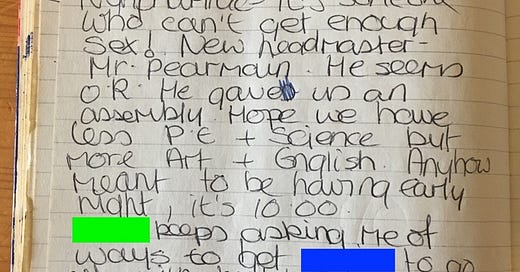 it's someone
who can't get enough
Sex! New headmaster-
Mr. Pearmain. He seems
O.K. He gave us an
assembly. Hope we have
less P.E + Science but
more Art + English. Anyhow
meant to be having early
night, it's 10:00.
keeps asking me of
ways to get to go